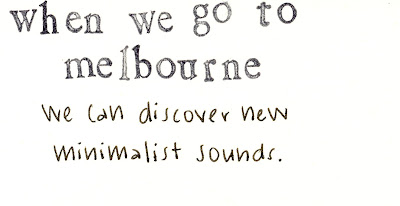 when we go to
melbourne
we can discover new
minimalist sounds.